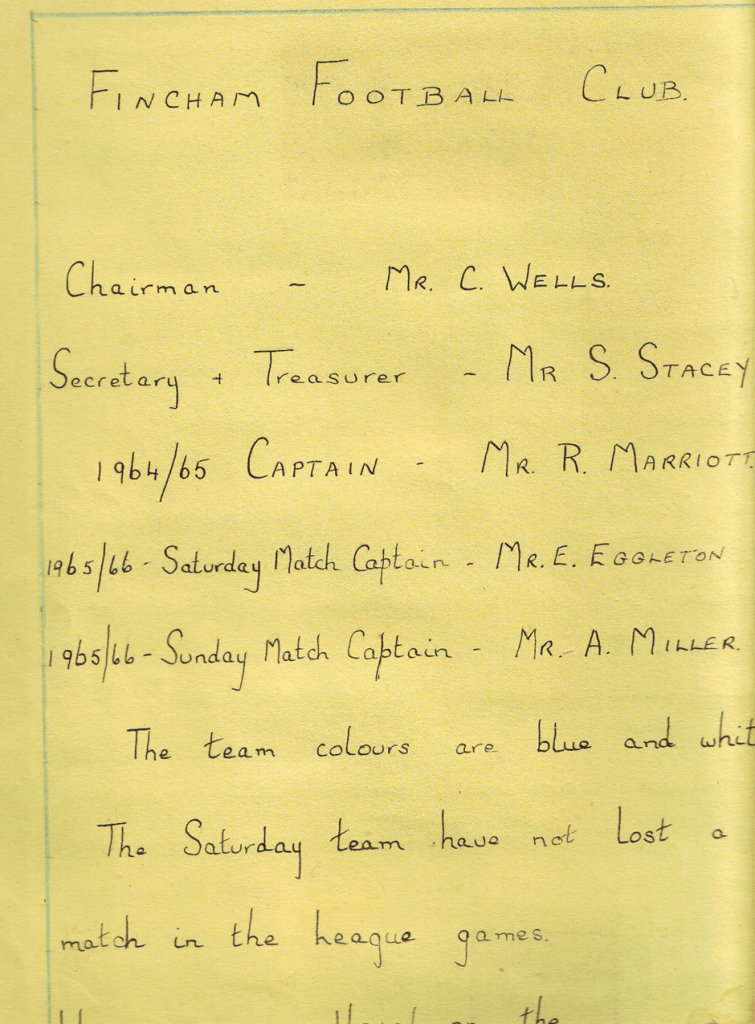 FINCHAM FOOTBALL CLUB.
Chairman - MR. C. WELLS.
Secretary + Treasurer - MR S. STACEY
1964/65 CAPTAIN - MR. R. MARRIOTT.
1965/66 - Saturday Match Captain - MR. E. EGGLETON
1965/66 - Sunday Match Captain - MR. A. MILLER.
The team colours are blue and whit
The Saturday team have not lost a
match in the league games.
the